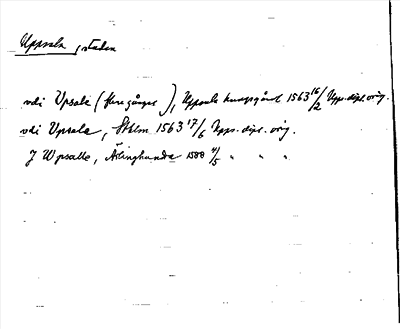 Uppsala, staden
vdi Upsala (flere gånger), Uppsala kungsgård 1563 16/2 Upps. dipl. orig.
vdi Upsala, Sthlm 1563 17/6 Upps. dipl. orig.
J Wpsalle, Ärlinghundra 1588 4/5 " " "